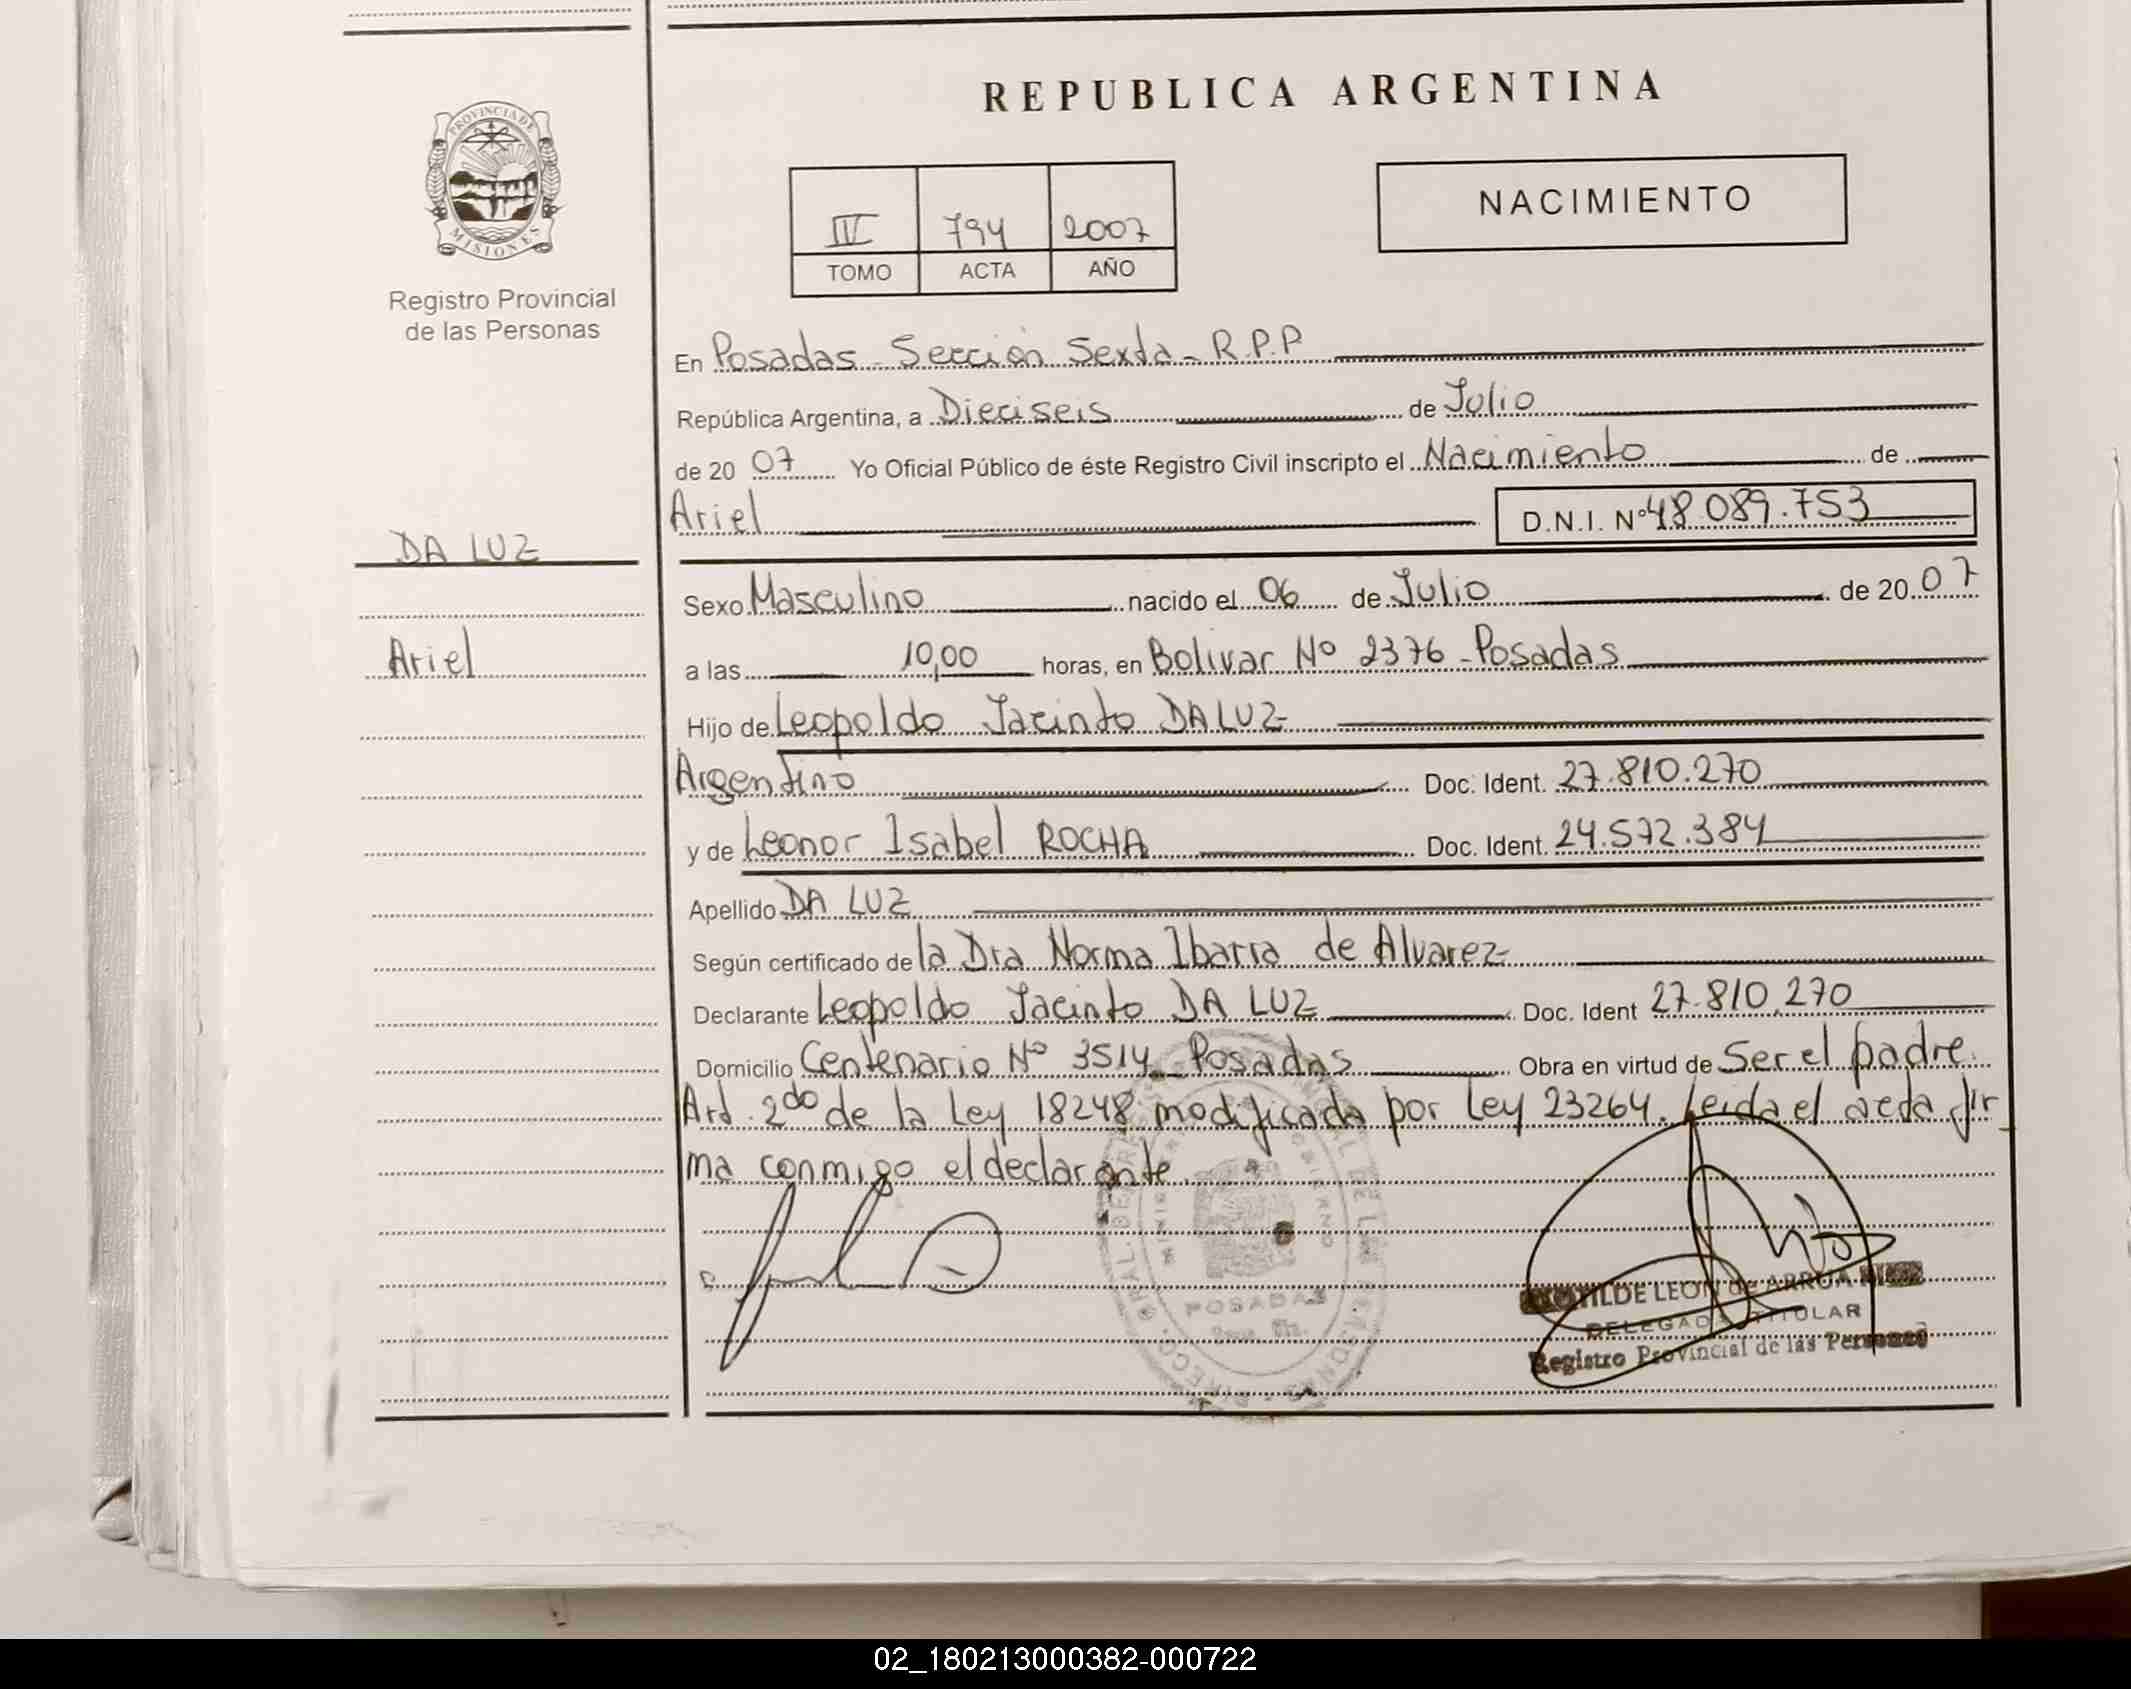 REPUBLICA ARGENTINA
PROVINCIA DE
MISIONES
Registro Provincial
de las Personas
NACIMIENTO
IV 794 2007
TOMO ACTA AÑO
En Posadas - Sección Sexta - R.P.P
República Argentina, a Dieciseis de Julio
de 2007 Yo Oficial Público de éste Registro Civil inscripto el Nacimiento de
Ariel D.N.I. Nº 48.089.753
DA LUZ
Ariel
Sexo Masculino nacido el 06 de Julio de 2007
a las 10,00 horas, en Bolivar Nº 2376 - Posadas
Hijo de Leopoldo Jacinto DA LUZ
Argentino Doc. Ident. 27.810.270
y de Leonor Isabel ROCHA Doc. Ident. 24.572.384
Apellido DA LUZ
Según certificado de la Dra Norma Ibarra de Alvarez
Declarante Leopoldo Jacinto DA LUZ Doc. Ident 27.810.270
Domicilio Centenario Nº 3514 - Posadas Obra en virtud de Ser el padre.
Art. 2do de la Ley 18248 modificada por Ley 23264. Leida el acta fir
ma conmigo el declarante.
POSADAS
LEON de ARRUA
DELEGADA TITULAR
Registro Provincial de las Personas
02_180213000382-000722